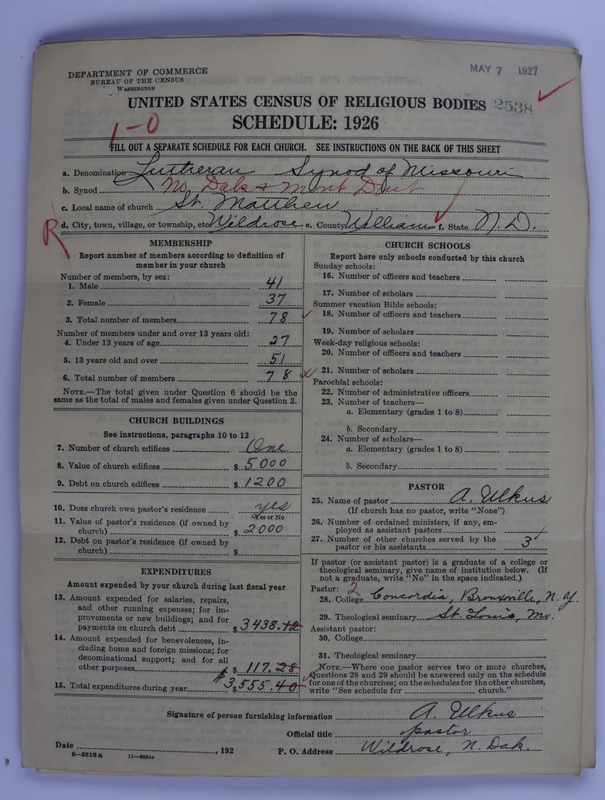 MAY 7 1927
DEPARTMENT OF COMMERCE
BUREAU OF THE CENSUS
WASHINGTON
UNITED STATES CENSUS OF RELIGIOUS BODIES 2538
SCHEDULE: 1926
1-0
FILL OUT A SEPARATE SCHEDULE FOR EACH CHURCH. SEE INSTRUCTIONS ON THE BACK OF THIS SHEET
a. Denomination Lutheran Synod of Missouri
b. Synod No. Dak & Mont Dist
c. Local name of church St. Matthew
R d. City, town, village, or township, etc. Wildrose e. County Williams f. State N. D.
MEMBERSHIP
Report number of members according to definition of
member in your church
Number of members, by sex:
1. Male 41
2. Female 37
3. Total number of members 78
Number of members under and over 13 years old:
4. Under 13 years of age 27
5. 13 years old and over 51
6. Total number of members 78
NOTE.—The total given under Question 6 should be the
same as the total of males and females given under Question 3.
CHURCH BUILDINGS
See instructions, paragraphs 10 to 12
7. Number of church edifices One
8. Value of church edifices $ 5000
9. Debt on church edifices $ 1200
10. Does church own pastor's residence yes
Yes or No
11. Value of pastor's residence (if owned by
church) $ 2000
12. Debt on pastor's residence (if owned by
church) $
EXPENDITURES
Amount expended by your church during last fiscal year
13. Amount expended for salaries, repairs,
and other running expenses; for im-
provements or new buildings; and for
payments on church debt $ 3438.12
14. Amount expended for benevolences, in-
cluding home and foreign missions; for
denominational support; and for all
other purposes $ 117.28
15. Total expenditures during year $ 3,555.40
CHURCH SCHOOLS
Report here only schools conducted by this church
Sunday schools:
16. Number of officers and teachers
17. Number of scholars
Summer vacation Bible schools:
18. Number of officers and teachers
19. Number of scholars
Week-day religious schools:
20. Number of officers and teachers
21. Number of scholars
Parochial schools:
22. Number of administrative officers
23. Number of teachers—
a. Elementary (grades 1 to 8)
b. Secondary
24. Number of scholars—
a. Elementary (grades 1 to 8)
b. Secondary
PASTOR
25. Name of pastor A. Ulkus
(If church has no pastor, write "None")
26. Number of ordained ministers, if any, em-
ployed as assistant pastors
27. Number of other churches served by the
pastor or his assistants 3
If pastor (or assistant pastor) is a graduate of a college or
theological seminary, give name of institution below. (If
not a graduate, write "No" in the space indicated.)
Pastor: 2
28. College Concordia, Bronxville, N.Y.
29. Theological seminary St. Louis, Mo.
Assistant pastor:
30. College
31. Theological seminary
NOTE.—Where one pastor serves two or more churches,
Questions 28 and 29 should be answered only on the schedule
for one of the churches; on the schedules for the other churches,
write "See schedule for church."
Signature of person furnishing information A. Ulkus
Official title pastor
Date , 192 P. O. Address Wildrose, N. Dak.
8—5518a 11—9294